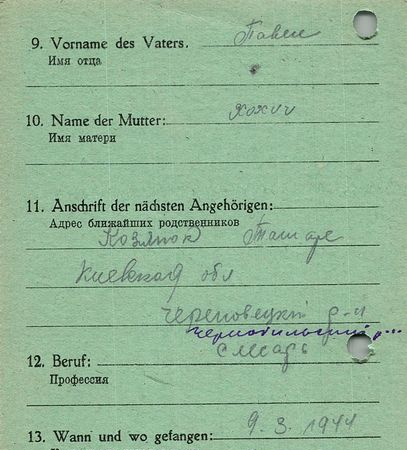 9. Vorname des Vaters. Павел
Имя отца
10. Name der Mutter:
Имя матери
11. Anschrift der nächsten Angehörigen:
Адрес ближайших родственников
Козянок
Киевская обл
Череповецкий р-н
Чернобильский р...
12. Beruf: слесарь
Профессия
13. Wann und wo gefangen: 9. 3. 1944